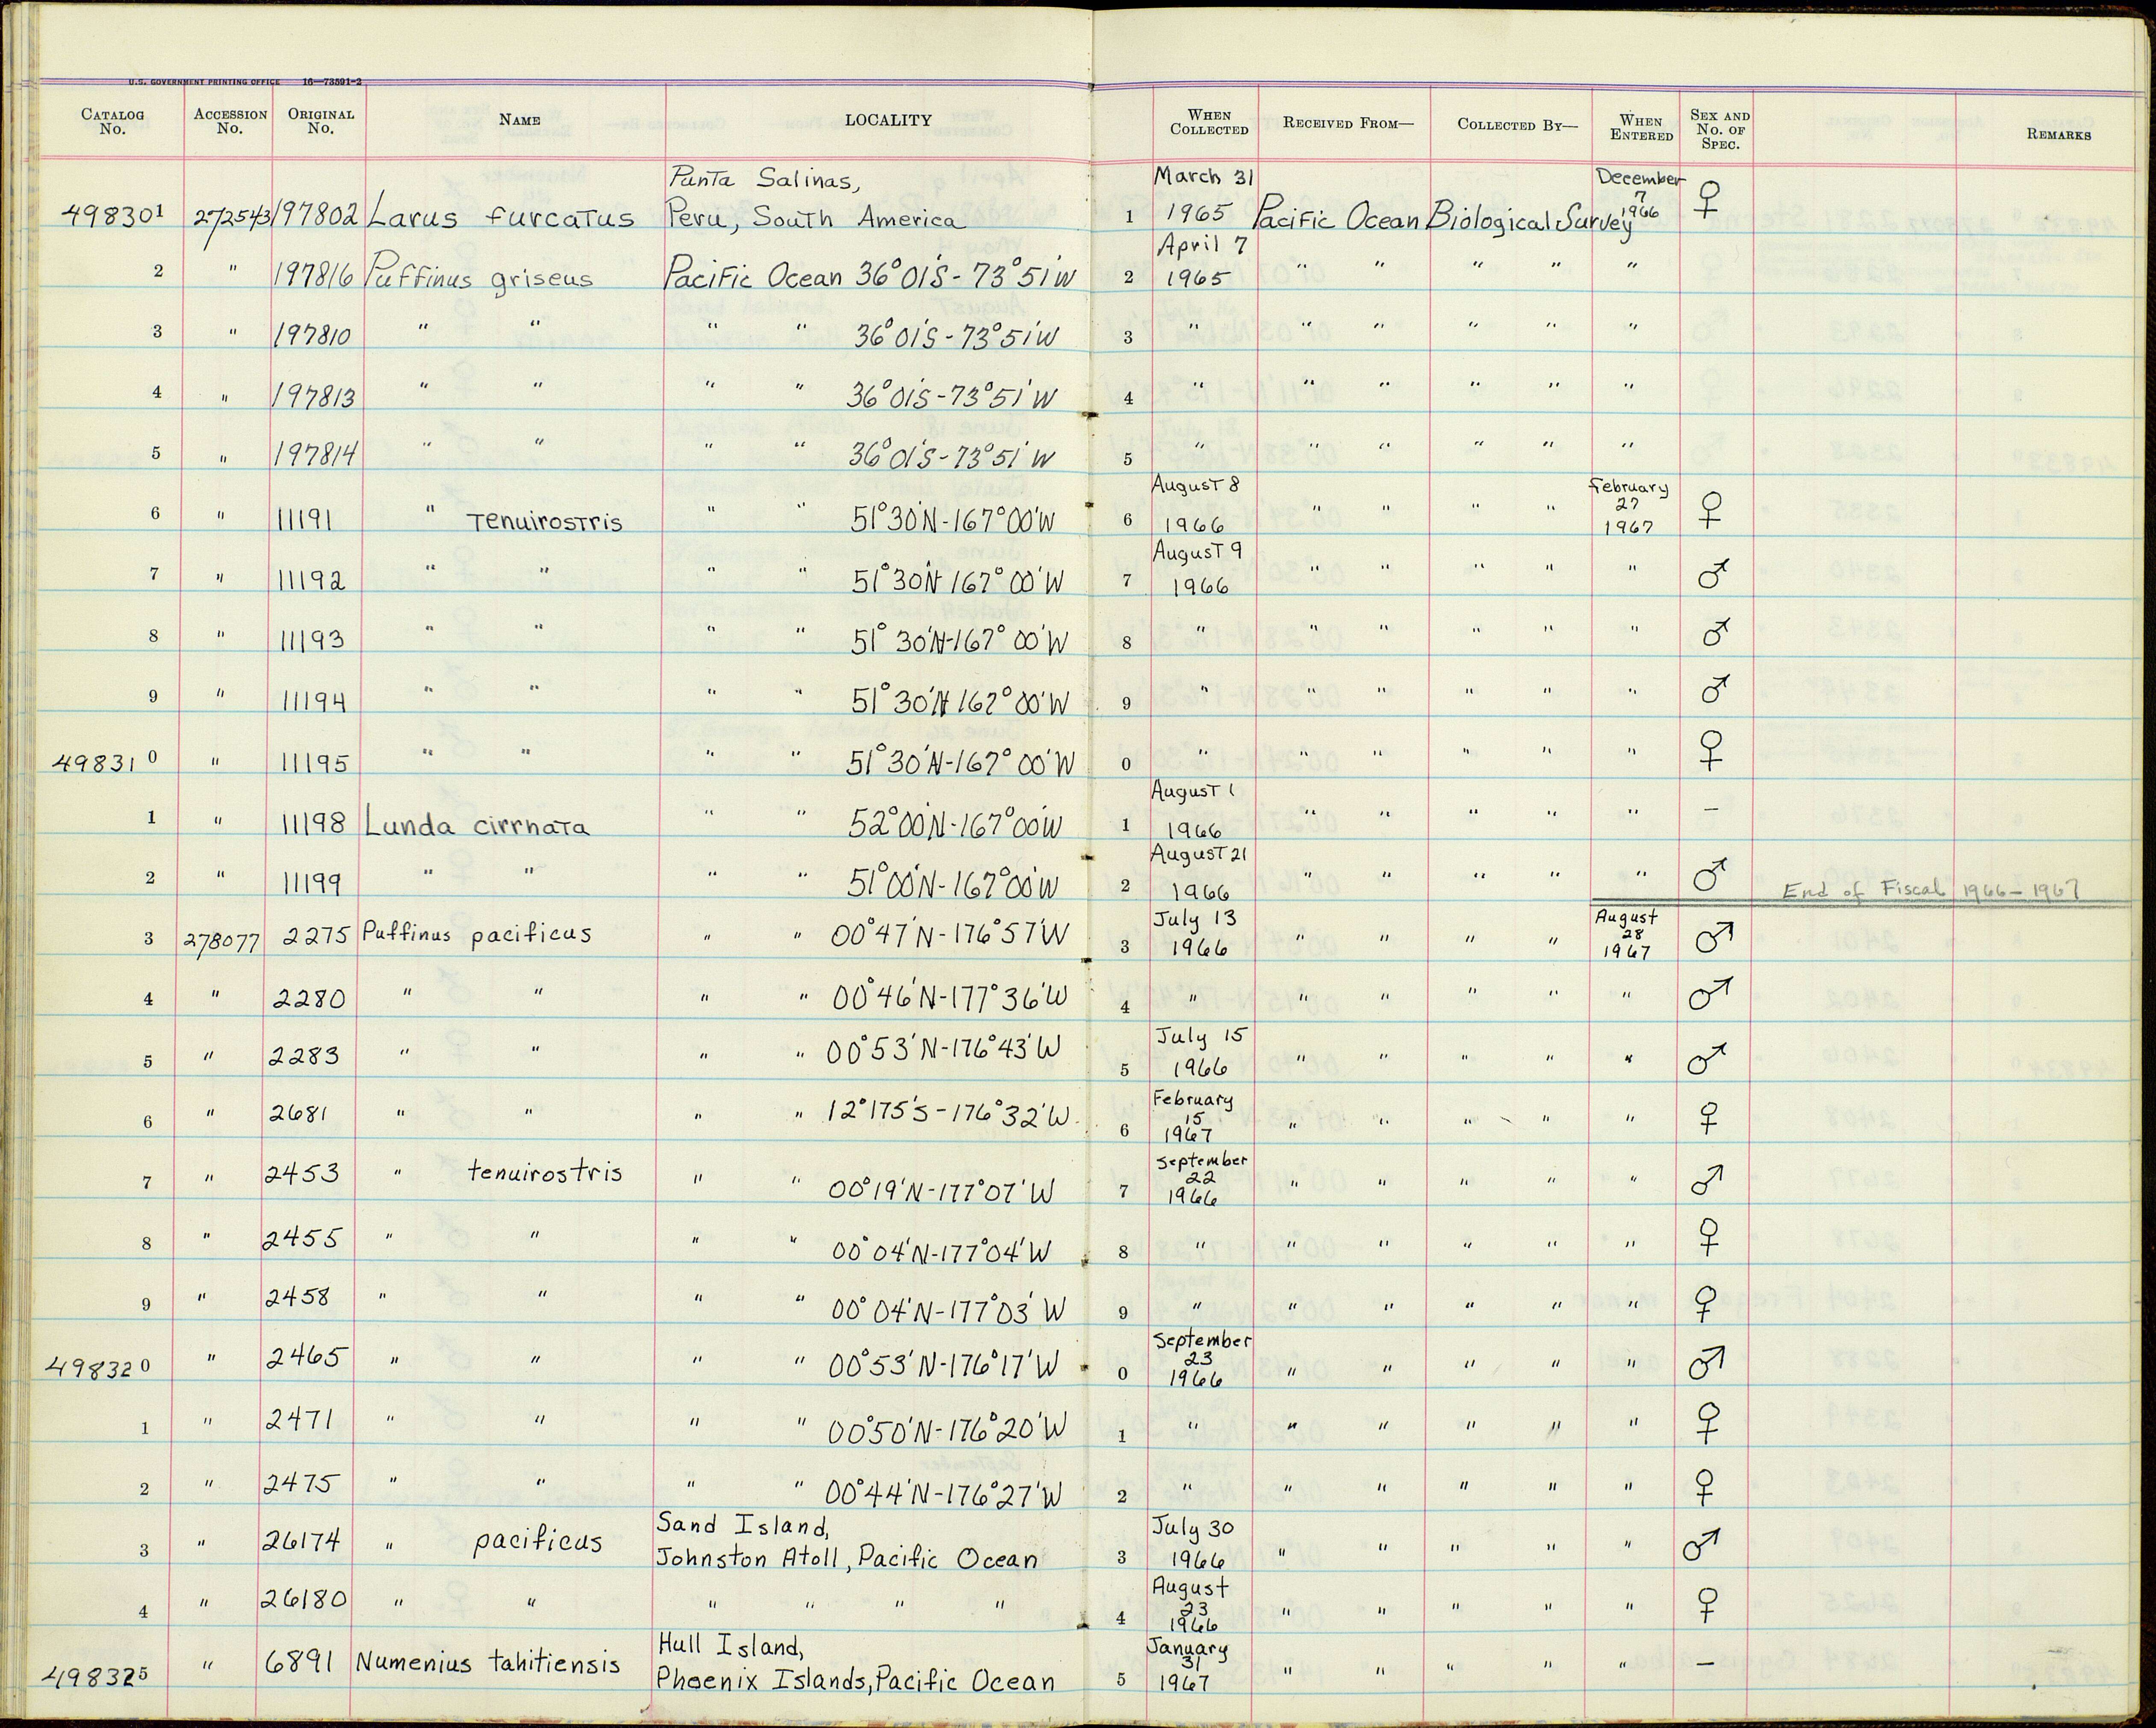 U.S. GOVERNMENT PRINTING OFFICE 16—73591-2
CATALOG No. ACCESSION No. ORIGINAL No. NAME LOCALITY WHEN COLLECTED RECEIVED FROM— COLLECTED BY— WHEN ENTERED SEX AND No. OF SPEC. REMARKS
Punta Salinas, March 31 December 7
498301 272543 197802 Larus furcatus Peru, South America 1 1965 Pacific Ocean Biological Survey 1966 ♀
April 7
2 " 197816 Puffinus griseus Pacific Ocean 36°01'S-73°51'W 2 1965 " " " " "
3 " 197810 " " " " 36°01'S-73°51'W 3 " " " " " "
4 " 197813 " " " " 36°01'S-73°51'W 4 " " " " " "
5 " 197814 " " " " 36°01'S-73°51'W 5 " " " " " "
August 8 February 27
6 " 11191 " Tenuirostris " " 51°30'N-167°00'W 6 1966 " " " " 1967 ♀
August 9
7 " 11192 " " " " 51°30'N-167°00'W 7 1966 " " " " " ♂
8 " 11193 " " " " 51°30'N-167°00'W 8 " " " " " " ♂
9 " 11194 " " " " 51°30'N-167°00'W 9 " " " " " " ♂
498310 " 11195 " " " " 51°30'N-167°00'W 0 " " " " " " ♀
August 1
1 " 11198 Lunda cirrhata " " 52°00'N-167°00'W 1 1966 " " " " " –
August 21
2 " 11199 " " " " 51°00'N-167°00'W 2 1966 " " " " " ♂ End of Fiscal 1966-1967
July 13 August 28
3 278077 2275 Puffinus pacificus " " 00°47'N-176°57'W 3 1966 " " " " 1967 ♂
4 " 2280 " " " " 00°46'N-177°36'W 4 " " " " " " ♂
July 15
5 " 2283 " " " " 00°53'N-176°43'W 5 1966 " " " " " ♂
February 15
6 " 2681 " " " " 12°175'S-176°32'W. 6 1967 " " " " " ♀
September 22
7 " 2453 " tenuirostris " " 00°19'N-177°07'W 7 1966 " " " " " ♂
8 " 2455 " " " " 00°04'N-177°04'W 8 " " " " " " ♀
9 " 2458 " " " " 00°04'N-177°03'W 9 " " " " " " ♀
September 23
498320 " 2465 " " " " 00°53'N-176°17'W 0 1966 " " " " " ♂
1 " 2471 " " " " 00°50'N-176°20'W 1 " " " " " " ♀
2 " 2475 " " " " 00°44'N-176°27'W 2 " " " " " " ♀
Sand Island, July 30
3 " 26174 " pacificus Johnston Atoll, Pacific Ocean 3 1966 " " " " " ♂
August 23
4 " 26180 " " " " " " 4 1966 " " " " " ♀
Hull Island, January 31
498325 " 6891 Numenius tahitiensis Phoenix Islands, Pacific Ocean 5 1967 " " " " " –